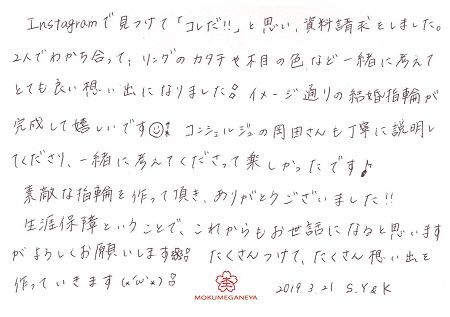 Instagramで見つけて「コレだ!!」と思い、資料請求をしました。
2人でわかち合って、リングのカタチや木目の色など一緒に考えて
とても良い想い出になりました。イメージ通りの結婚指輪が
完成して嬉しいです☺! コンシェルジュの岡田さんも丁寧に説明し
てくださり、一緒に考えてくださって楽しかったです♪
素敵な指輪を作って頂き、ありがとうございました!!
生涯保障ということで、これからもお世話になると思います
がよろしくお願いします たくさんつけて、たくさん想い出を
作っていきます(*'ω'*)
2019.3.21 S.Y&K
MOKUMEGANEYA